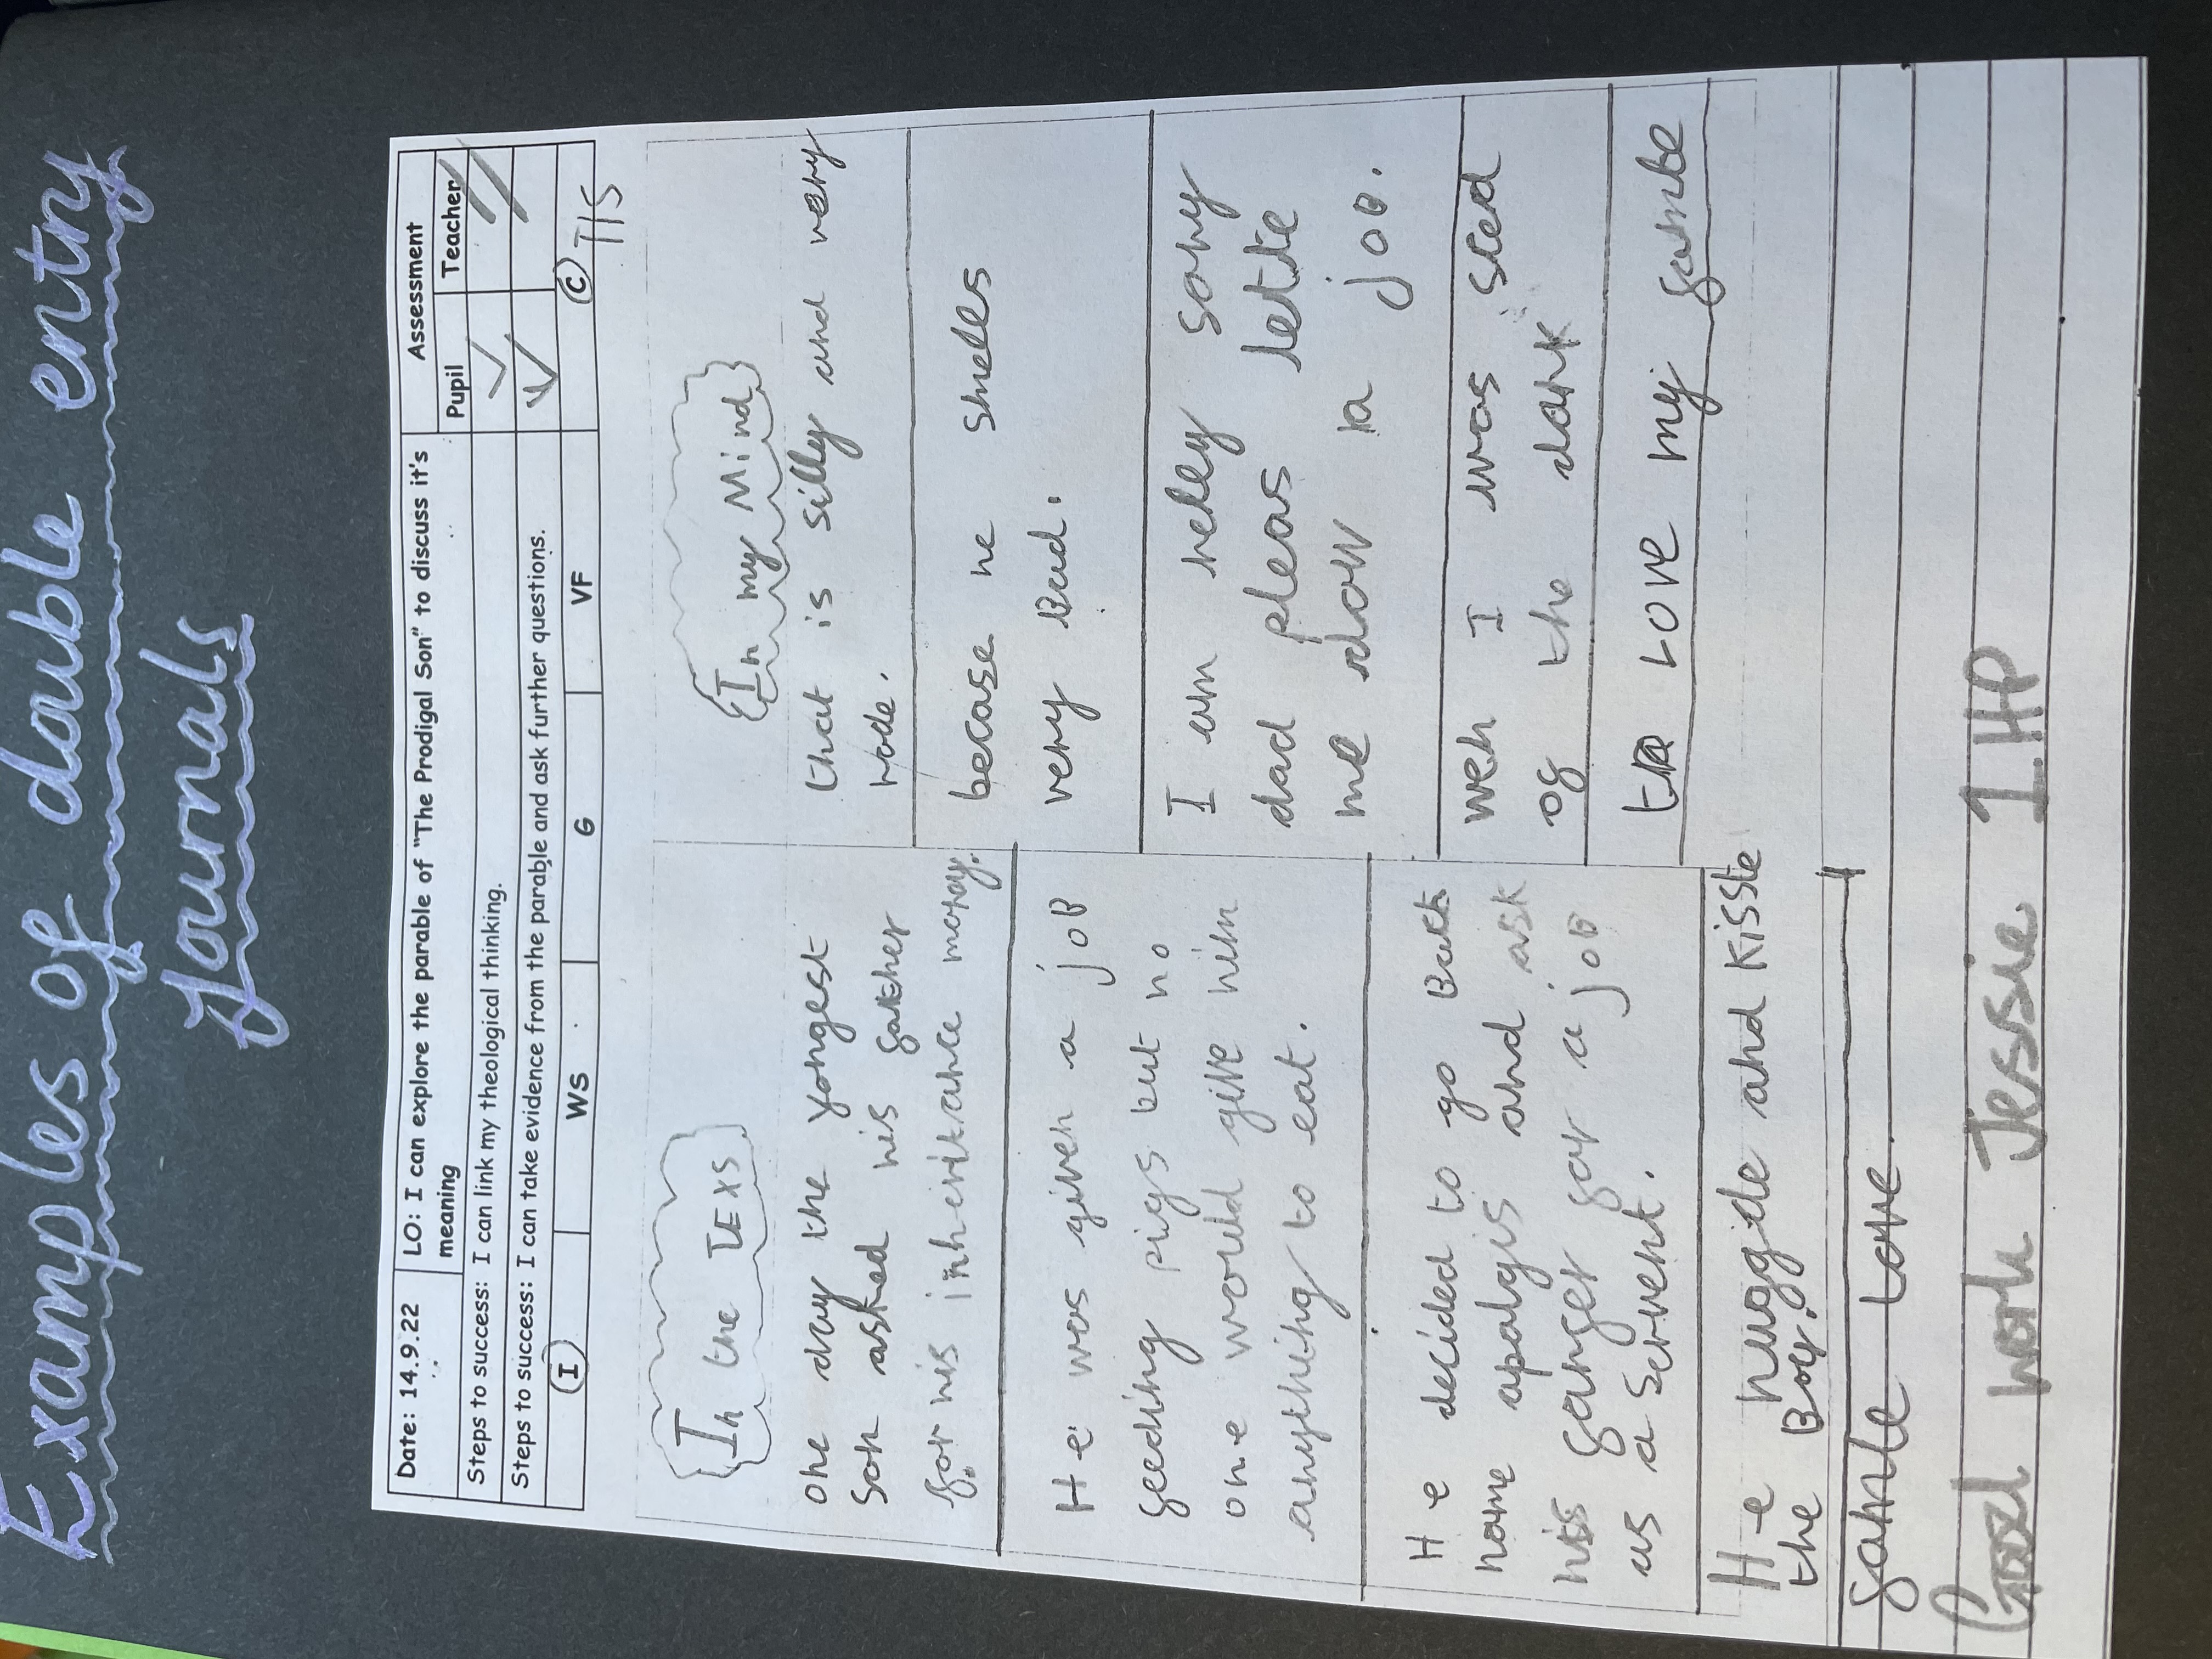 Examples of double entry
Journals
Date: 14.9.22
LO: I can explore the parable of "The Prodigal Son" to discuss it's
meaning
Assessment
Pupil
Teacher
Steps to success: I can link my theological thinking.
Steps to success: I can take evidence from the parable and ask further questions.
I
WS
G
VF
C
T1S
In the TEXS
one day the yongest
Son asked his father
for his inheritance money.
He was given a joB
feeding pigs but no
one would give him
anything to eat.
He decided to go Back
home apalgis and ask
his fanger for a joB
as a Servent.
He huggide and kisste
the Boy.
famle Love
In my Mind
that is silly and very
rode.
becase he smells
very Bad.
I am relley sory
dad pleas lette
me dow a joB.
weh I was sced
of the dark
to Love my famle
Good work Jessie 1.HP